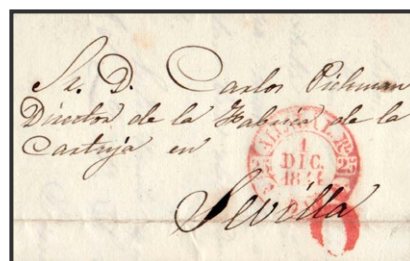 Sr. D. Carlos Pickman
Director de la Fabrica de la
Cartuja en
1
DIC.
Sevilla